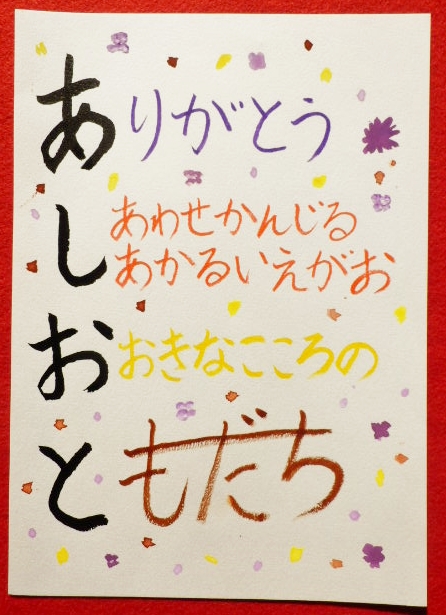 ありがとう
しあわせかんじる
あかるいえがお
おおきなこころの
ともだち